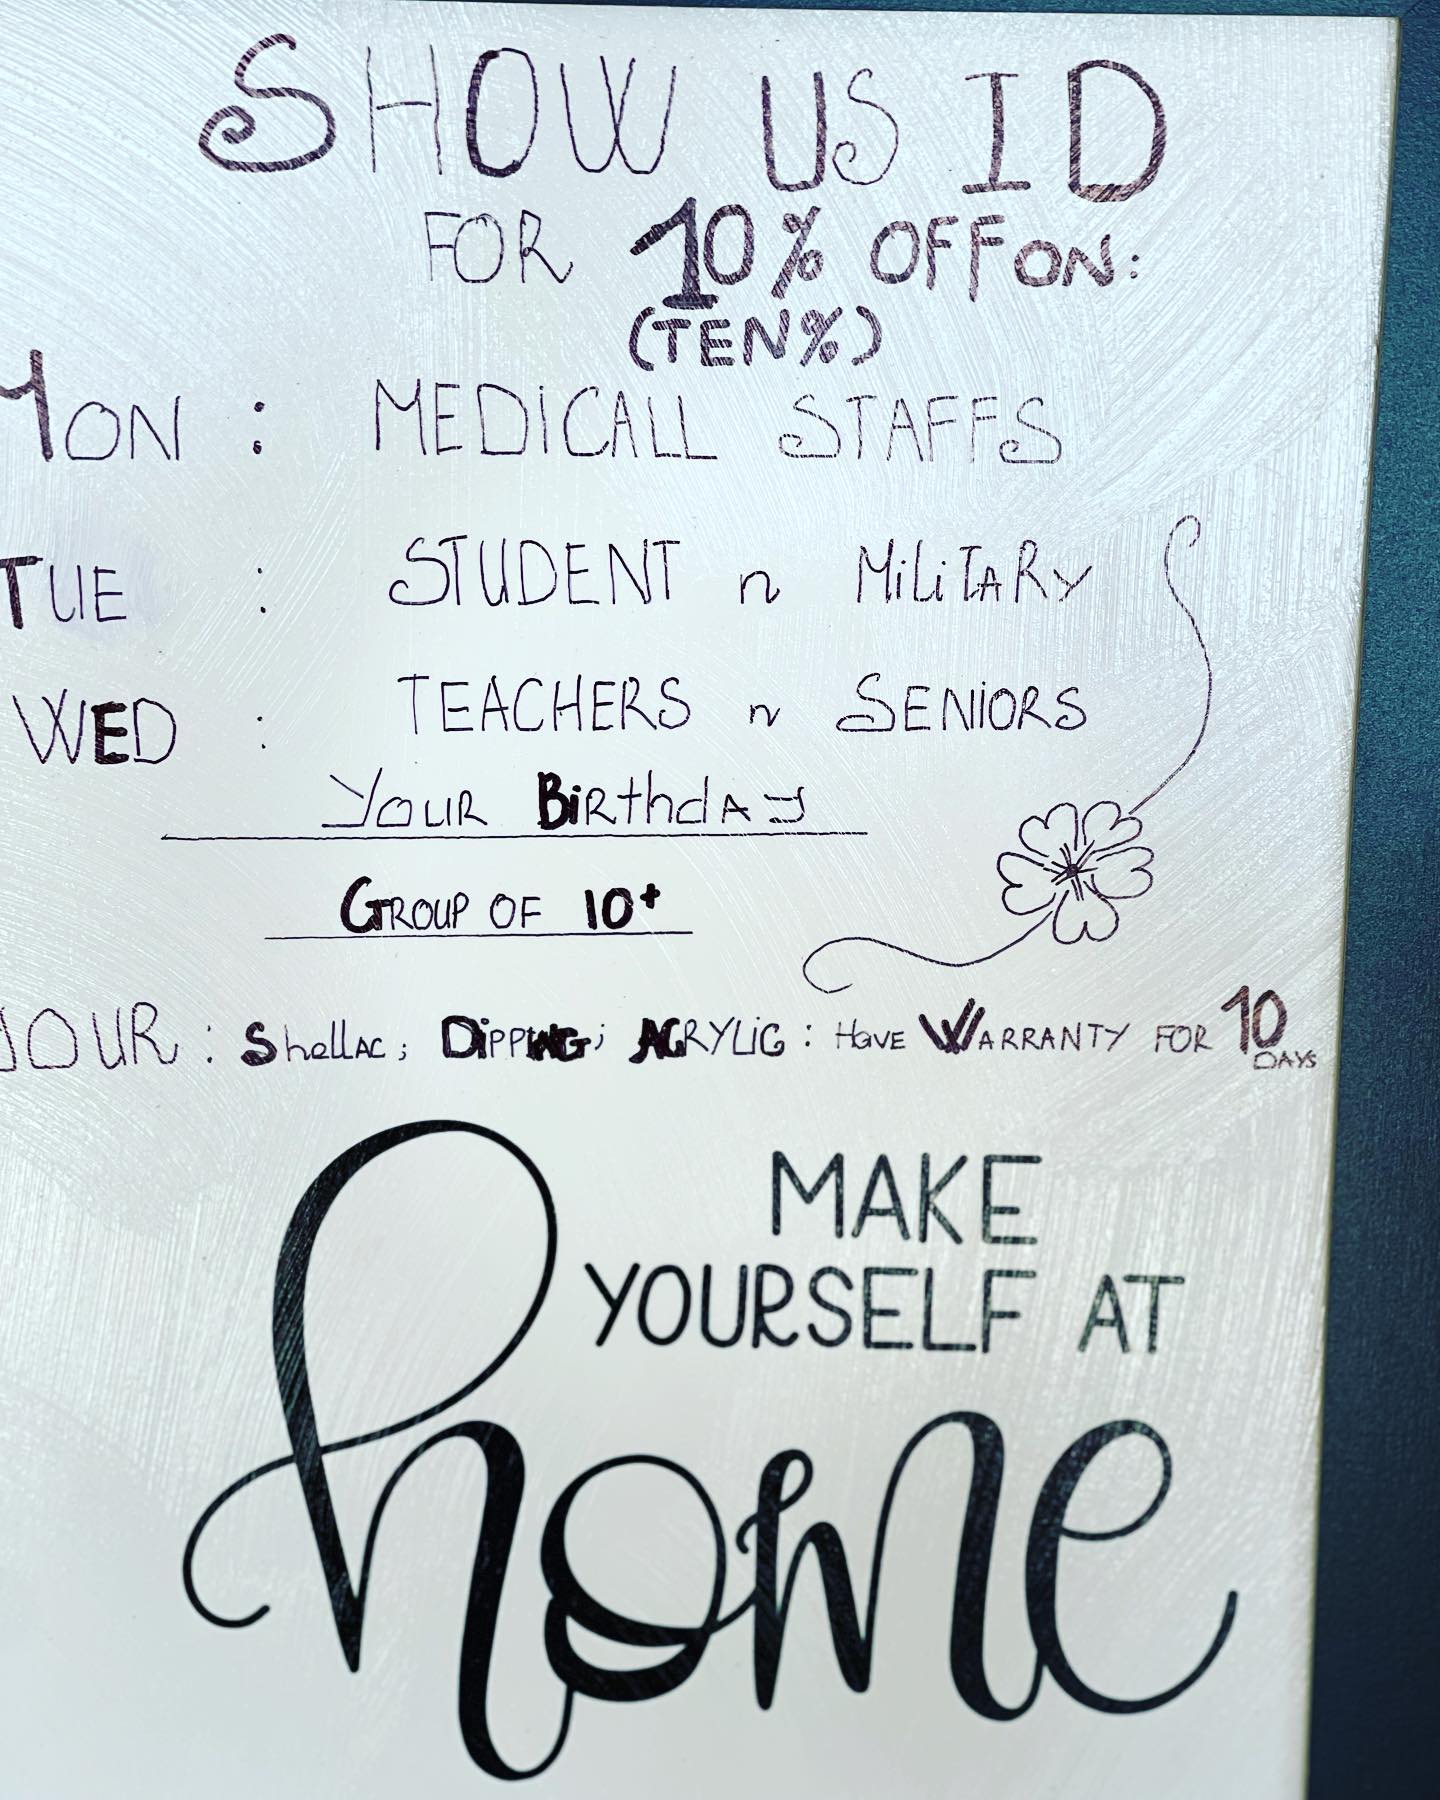 SHOW US ID
FOR 10% OFF ON:
(TEN%)
MON : MEDiCALL STAFFS
TUE : STUDENT n MiLiTARY
WED : TEACHERS n SENiORS
YOUR BiRthdAY
GROUP OF 10+
YOUR : ShellAC ; DippiNG ; ACRYLiC : HAVE WARRANTY FOR 10 DAYS
MAKE
YOURSELF AT
home